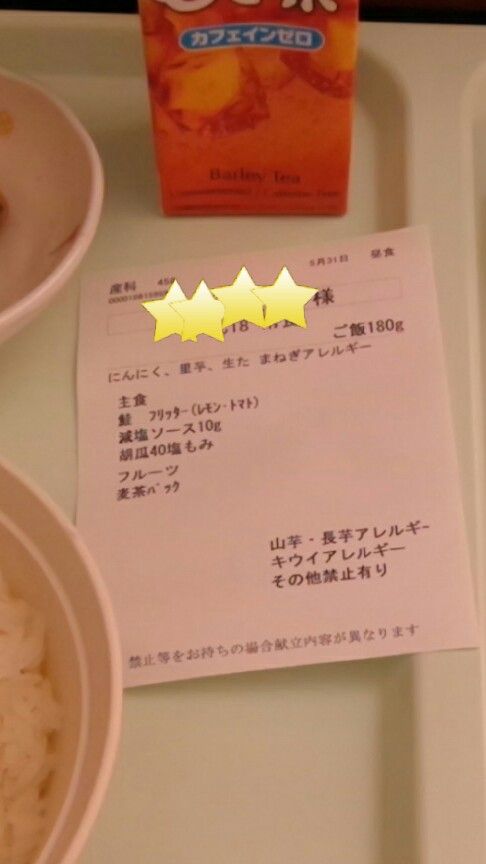 カフェインゼロ
Barley Tea
5月31日 昼食
産科
様
ご飯180g
にんにく、里芋、生た まねぎアレルギー
主食
鮭 フリッター(レモン・トマト)
減塩ソース10g
胡瓜40塩もみ
フルーツ
麦茶パック
山芋・長芋アレルギー
キウイアレルギー
その他禁止有り
禁止等をお持ちの場合献立内容が異なります